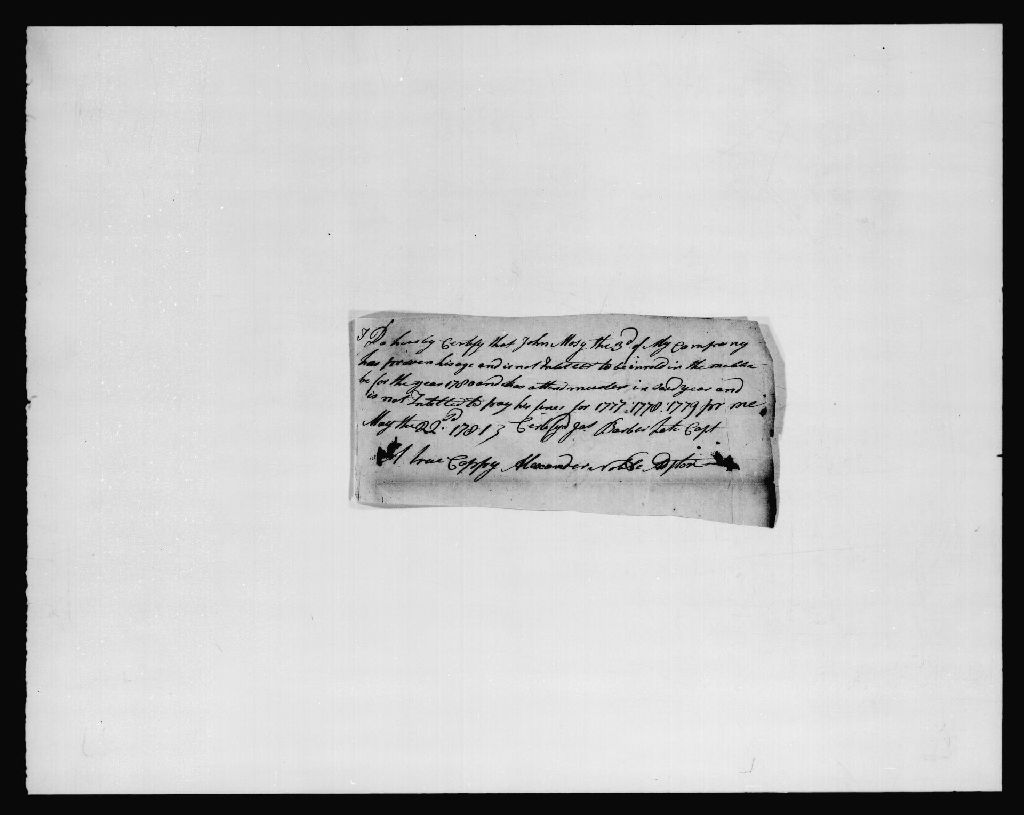 I Do hereby Certefy that John Mosy the 3d of My Company
has proven his age and is not Intelled to be inrold in the
be for the year 1780 and has attend muster in said year and
is not Intelled to pay his fines for 1777: 1778: 1779 for me
May the 22d 1781 } Certefyd Jas Barber Late Capt
A true Coppy Alexander Noble